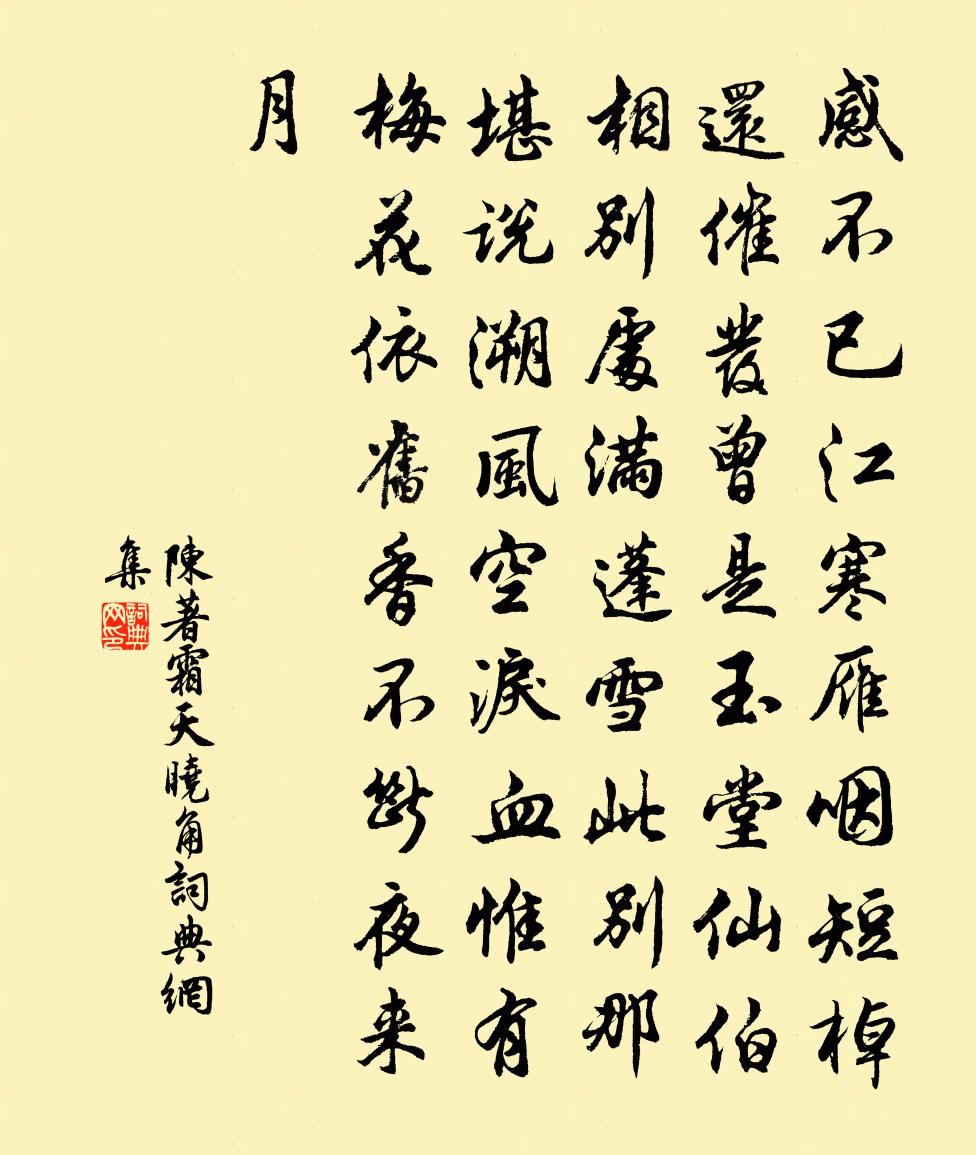 感不已江寒雁咽短棹
還催發曾是玉堂仙伯
相別處滿蓬雪此別那
堪說溯風空淚血惟有
梅花依舊香不斷夜来
月
陳著霜天曉角詞典網
集
詞典网印